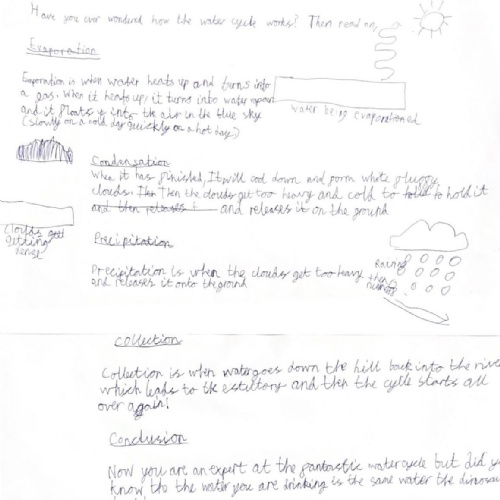 Have you ever wondered how the water cycle works? Then read on,
Evaporation
Evaporation is when water heats up and turns into
a gas. When it heats up, it turns into water
and it floats into the air in the blue sky
(Slowly on a cold day quickly on a hot day.)
water being evaporationed
Condensation
When it has finished, It will cool down and form white fluffy
clouds. Then the clouds get too heavy and cold to hold it
and then releases and releases it on the ground
Clouds
getting
dense
Precipitation
Precipitation is when the clouds get too heavy
and releases it onto the ground
Raining
then
Collection
Collection is when water goes down the hill back into the rive
which leads to the and then the cycle starts all
over again!
Conclusion
Now you are an expert at the fantastic water cycle but did y
know the the water you are drinking is the same water the dinosau